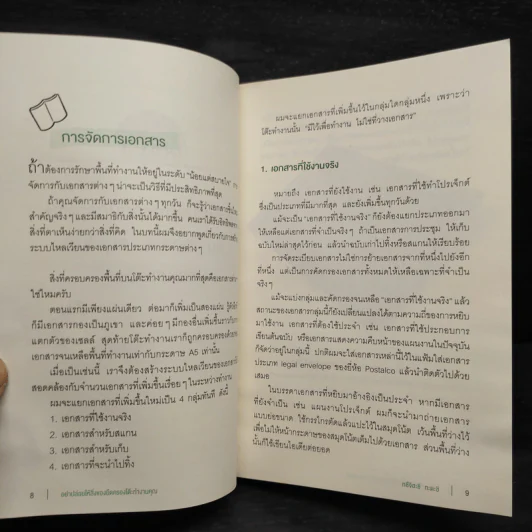 การจัดการเอกสาร
ถ้าต้องการรักษาพื้นที่ทำงานให้อยู่ในระดับ "น้อยแต่สบายใจ"
จัดการกับเอกสารต่าง ๆ น่าจะเป็นวิธีที่มีประสิทธิภาพที่สุด
ถ้าคุณจัดการกับเอกสารต่าง ๆ ทุกวัน ก็จะรู้ว่าเอกสารชิ้นไหน
สำคัญจริง ๆ และมีสมาธิกับสิ่งนั้นได้มากขึ้น คนเราได้รับอิทธิพลจาก
สิ่งที่ตาเห็นง่ายกว่าสิ่งที่คิด ในบทนี้ผมจึงอยากพูดเกี่ยวกับการ
ระบบไหลเวียนของเอกสารประเภทกระดาษต่าง ๆ
สิ่งที่ครอบครองพื้นที่บนโต๊ะทำงานคุณมากที่สุดคือเอกสาร
ใช่ไหมครับ
ตอนแรกมีเพียงแผ่นเดียว ต่อมาก็เพิ่มเป็นสองแผ่น
ก็มีเอกสารกองเป็นภูเขา และค่อย ๆ มีกองอื่นเพิ่มขึ้น
แตกตัวของเซลล์ สุดท้ายโต๊ะทำงานเราก็ถูกครอบครองด้วย
เอกสารจนเหลือพื้นที่ทำงานเท่ากับกระดาษ A5 เท่านั้น
เมื่อเป็นเช่นนี้ เราจึงต้องสร้างระบบไหลเวียนของเอกสาร
สอดคล้องกับจำนวนเอกสารที่เพิ่มขึ้นเรื่อย ๆ ในระหว่างทำงาน
ผมจะแยกเอกสารที่เพิ่มขึ้นใหม่เป็น 4 กลุ่มทันที ดังนี้
1. เอกสารที่ใช้งานจริง
2. เอกสารสำหรับสแกน
3. เอกสารสำหรับเก็บ
4. เอกสารที่จะนำไปทิ้ง
8
ผมจะแยกเอกสารที่เพิ่มขึ้นไว้ในกลุ่มใดกลุ่มหนึ่ง เพราะว่า
โต๊ะทำงานนั้น "มีไว้เพื่อทำงาน ไม่ใช่ที่วางเอกสาร"
1. เอกสารที่ใช้งานจริง
หมายถึง เอกสารที่ยังใช้งาน เช่น เอกสารที่ใช้ทำโปรเจ็กต์
ซึ่งเป็นประเภทที่มีมากที่สุด และยังเพิ่มขึ้นทุกวันด้วย
แม้จะเป็น "เอกสารที่ใช้งานจริง" ก็ยังต้องแยกประเภทออกมา
ให้เหลือแต่เอกสารที่จำเป็นจริง ๆ ถ้าเป็นเอกสารการประชุม ให้เก็บ
ฉบับใหม่ล่าสุดไว้ก่อน แล้วนำฉบับเก่าไปทิ้งหรือสแกนให้เรียบร้อย
การจัดระเบียบเอกสารไม่ใช่การย้ายเอกสารจากที่หนึ่งไปยังอีก
ที่หนึ่ง แต่เป็นการคัดกรองเอกสารทั้งหมดให้เหลือเฉพาะที่จำเป็น
จริง ๆ
แม้จะแบ่งกลุ่มและคัดกรองจนเหลือ "เอกสารที่ใช้งานจริง" แล้ว
สถานะของเอกสารกลุ่มนี้ก็ยังเปลี่ยนแปลงได้ตามความถี่ของการหยิบ
มาใช้งาน เอกสารที่ต้องใช้ประจำ เช่น เอกสารที่ใช้ประกอบการ
เขียนต้นฉบับ หรือเอกสารแสดงความคืบหน้าของแผนงานในปัจจุบัน
ก็จัดว่าอยู่ในกลุ่มนี้ ปกติผมจะใส่เอกสารเหล่านี้ไว้ในแฟ้มใส่เอกสาร
ประเภท legal envelope ของยี่ห้อ Postalco แล้วนำติดตัวไปด้วย
เสมอ
ในบรรดาเอกสารที่หยิบมาอ้างอิงเป็นประจำ หากมีเอกสาร
ที่ยังจำเป็น เช่น แผนงานโปรเจ็กต์ ผมก็จะนำมาถ่ายเอกสาร
แบบย่อขนาด ใช้กรรไกรตัดแล้วแปะไว้ในสมุดโน้ต เว้นพื้นที่ว่างไว้
เพื่อไม่ให้หน้ากระดาษของสมุดโน้ตเต็มไปด้วยเอกสาร ส่วนพื้นที่ว่าง
นั้นก็ใช้เขียนไอเดียต่อยอด
9